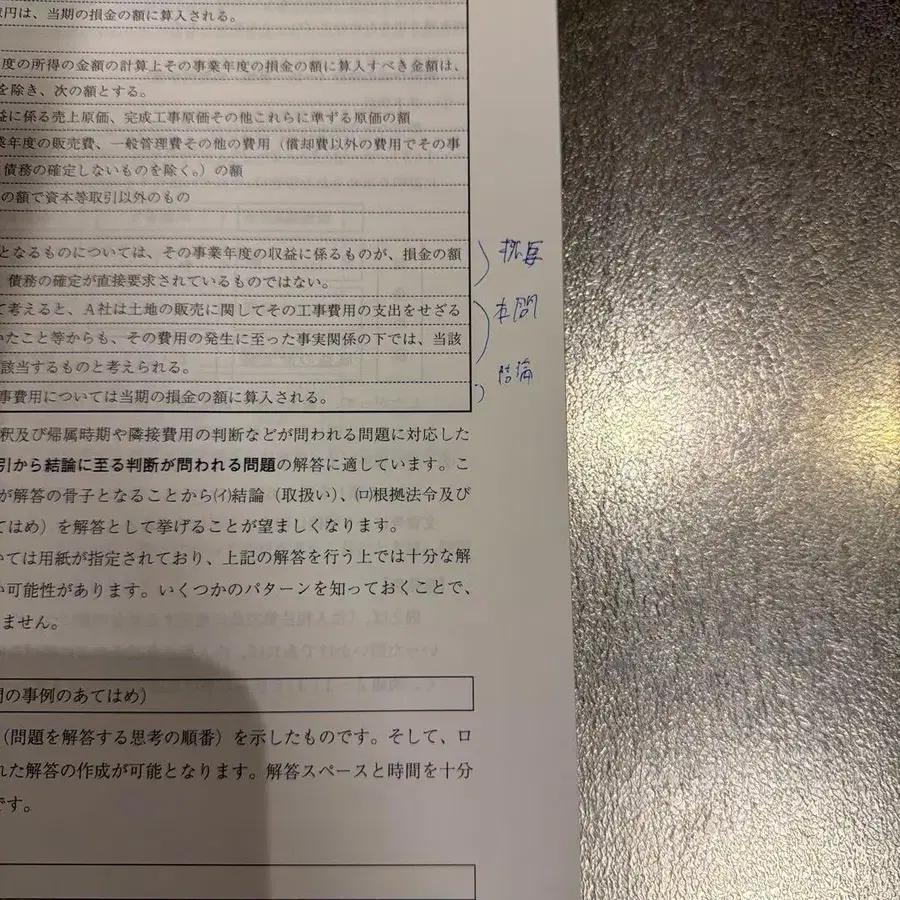 円は、当期の損金の額に算入される。
度の所得の金額の計算上その事業年度の損金の額に算入すべき金額は、
を除き、次の額とする。
益に係る売上原価、完成工事原価その他これらに準ずる原価の額
業年度の販売費、一般管理費その他の費用（償却費以外の費用でその事
債務の確定しないものを除く。）の額
の額で資本等取引以外のもの
となるものについては、その事業年度の収益に係るものが、損金の額
債務の確定が直接要求されているものではない。
て考えると、A社は土地の販売に関してその工事費用の支出をせざる
いたこと等からも、その費用の発生に至った事実関係の下では、当該
該当するものと考えられる。
事費用については当期の損金の額に算入される。
本問
結論
釈及び帰属時期や隣接費用の判断などが問われる問題に対応した
引から結論に至る判断が問われる問題の解答に適しています。こ
が解答の骨子となることから(イ)結論（取扱い）、(ロ)根拠法令及び
てはめ）を解答として挙げることが望ましくなります。
いては用紙が指定されており、上記の解答を行う上では十分な解
い可能性があります。いくつかのパターンを知っておくことで、
ません。
問の事例のあてはめ）
（問題を解答する思考の順番）を示したものです。そして、ロ
れた解答の作成が可能となります。解答スペースと時間を十分
です。